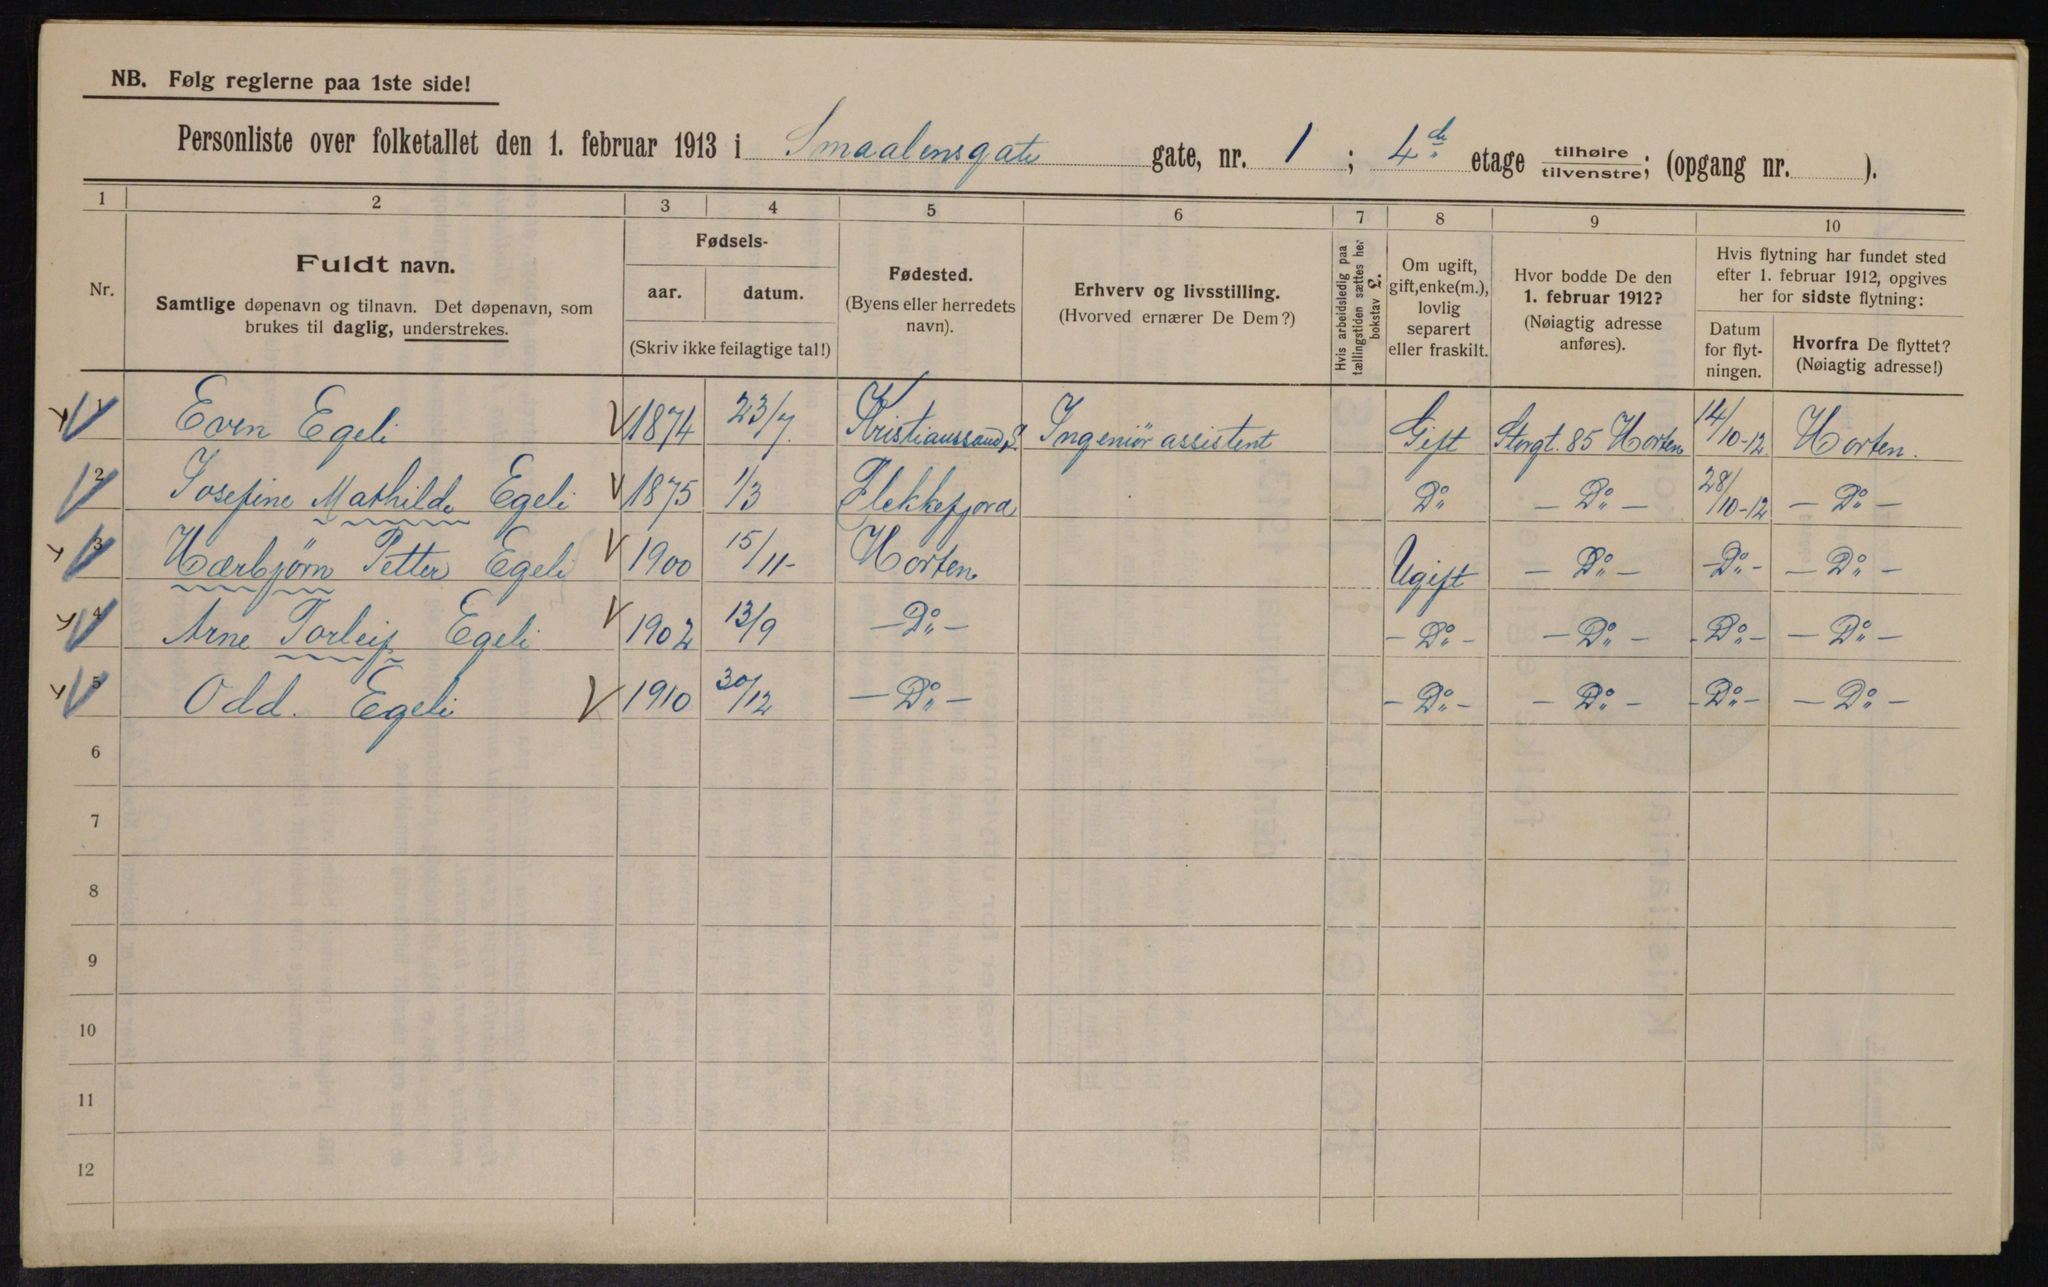 NB. Følg reglerne paa 1ste side!
Personliste over folketallet den 1. februar 1913 i Smaalensgate gate, nr. 1 ; 4de etage tilhøire/tilvenstre; (opgang nr. ).
1 2 3 4 5 6 7 8 9 10
Nr.
Fuldt navn.
Samtlige døpenavn og tilnavn. Det døpenavn, som
brukes til daglig, understrekes.
Fødsels-
aar. datum.
(Skriv ikke feilagtige tal!)
Fødested.
(Byens eller herredets
navn).
Erhverv og livsstilling.
(Hvorved ernærer De Dem?)
Hvis arbeidsledig paa
tællingstiden sættes her
bokstav l.
Om ugift,
gift, enke(m.),
lovlig
separert
eller fraskilt.
Hvor bodde De den
1. februar 1912?
(Nøiagtig adresse
anføres).
Hvis flytning har fundet sted
efter 1. februar 1912, opgives
her for sidste flytning:
Datum
for flyt-
ningen.
Hvorfra De flyttet?
(Nøiagtig adresse!)
1 Even Egeli 1874 23/7 Kristianssand S. Ingeniør assistent Gift Storgt. 85 Horten 14/10-12 Horten.
2 Josefine Mathilde Egeli 1875 1/3 Flekkefjord Do - Do - 28/10-12 - Do -
3 Hærbjørn Petter Egeli 1900 15/11- Horten Ugift - Do - - Do - - Do -
4 Arne Torleif Egeli 1902 13/9 - Do - - Do - - Do - - Do - - Do -
5 Odd. Egeli 1910 30/12 - Do - - Do - - Do - - Do - - Do -
6
7
8
9
10
11
12